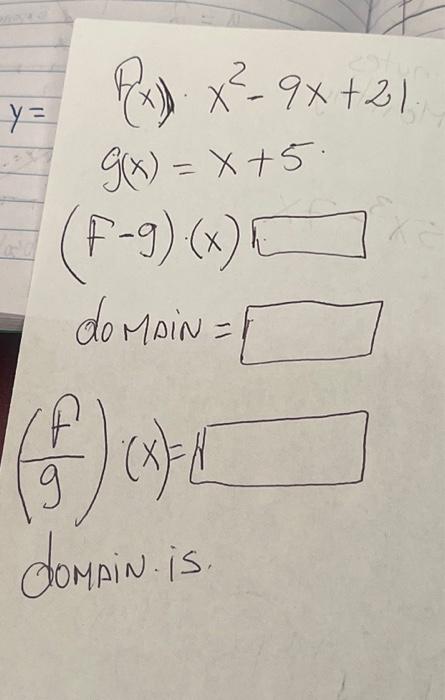 y=
F(x) . x² - 9x + 21.
g(x) = x + 5.
(F - g) . (x)
doMAiN =
(F/g) . (x) =
doMAiN . is.